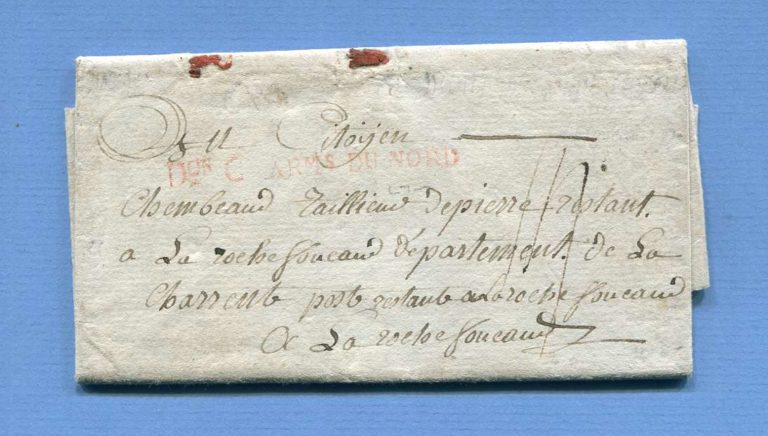 Au Citoyen
Don C ARMS DU NORD
Chembeaud Taillieur depierre restant.
a La rochefoucaud département. de La
Charrente poste restante a la rochefoucaud
A La rochefoucaud